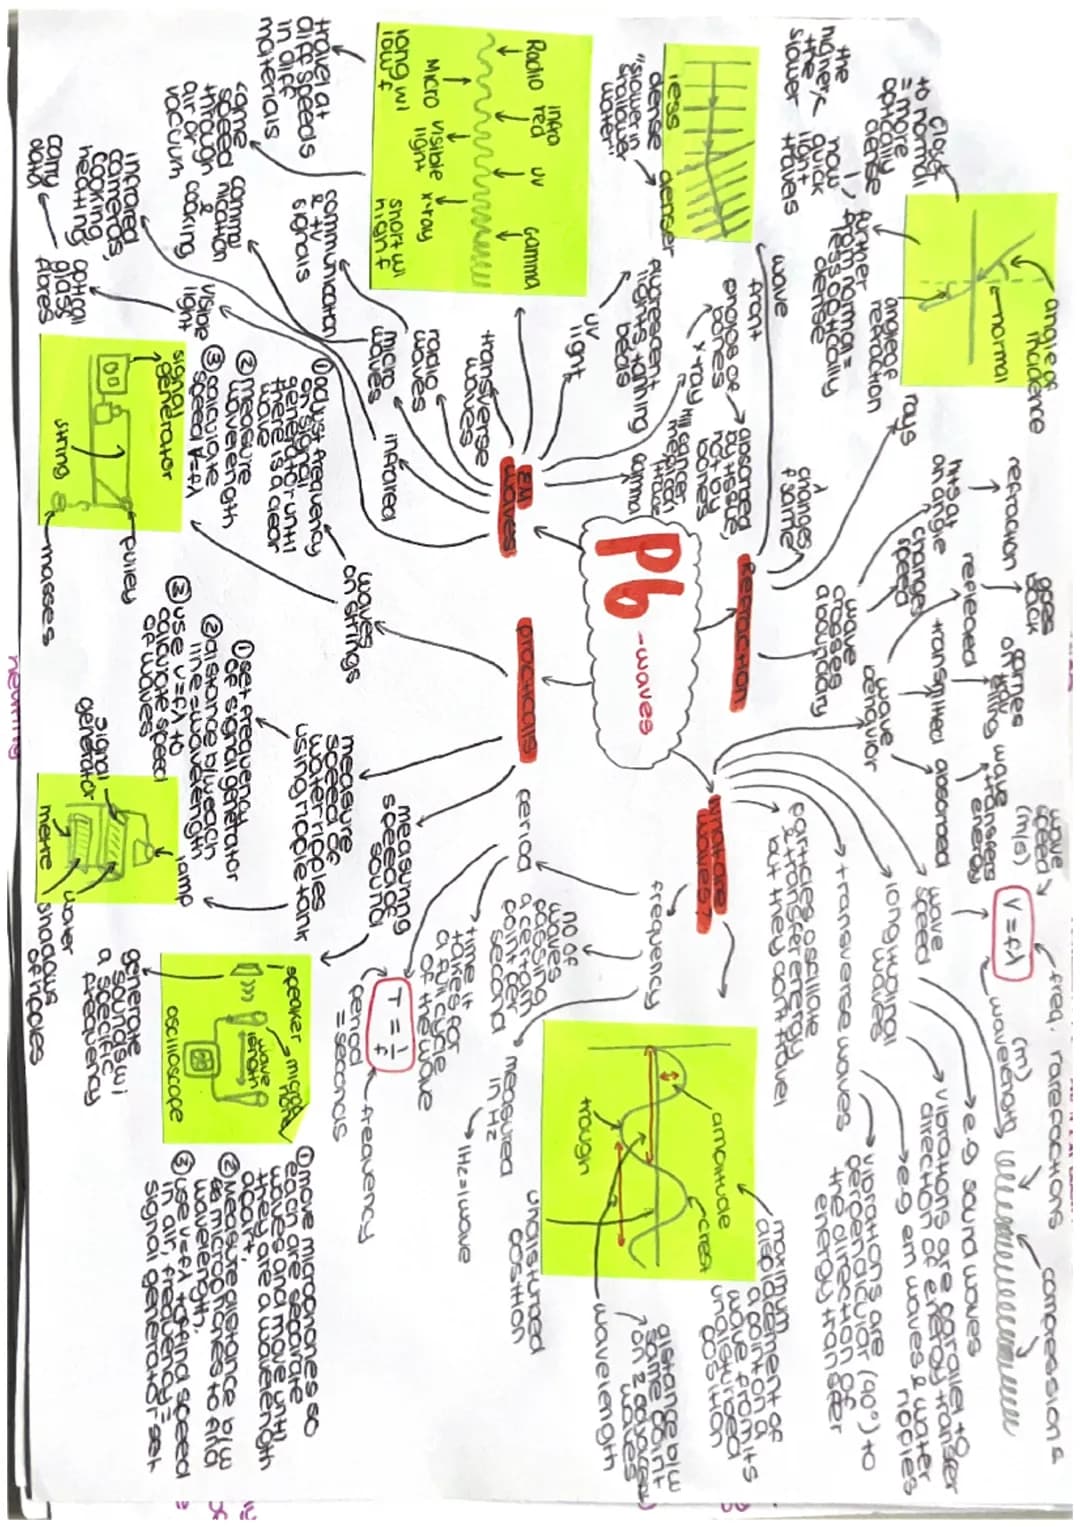 P6
-waves
EM
waves
Refraction
What are
waves?
practicals
angle of
incidence
normal
angle of
refraction
closer
to normal
= more
optically
dense
further
from normal =
less optically
dense
the
higher
the
slower
how
quick
light
travels
rays
wave
front
less
dense
denser
"slower in
shallower
water"
changes
f same
wave
crosses
a boundary
changes
speed
hits at
an angle
refraction
reflected
goes
back
transmitted
carries
on travelling
absorbed
wave
transfers
energy
wave
behaviour
wave
speed
(m/s)
v = fλ
freq.
wavelength
(m)
rarefactions
compressions
wave
speed
longitudinal
waves
e.g sound waves
vibrations are parallel to
direction of energy transfer
transverse waves
e.g em waves & water
ripples
vibrations are
perpendicular (90°) to
the direction of
energy transfer
particles oscillate
& transfer energy
but they don't travel
amplitude
crest
trough
maximum
displacement of
a point on a
wave from its
undisturbed
position
distance b/w
same point
on 2 adjacent
waves
wavelength
undisturbed
position
frequency
no of
waves
passing
a certain
point per
second
measured
in Hz
1Hz = 1 wave
period
time it
takes for
a full cycle
of the wave
T = 1/f
period
= seconds
frequency
transverse
waves
radio
waves
communication
& tv
signals
micro
waves
commu
nication
&
cooking
infrared
infrared
cameras,
cooking
heating
visible
light
optical
glass
fibres
carry
data
uv
light
fluorescent
lights, tanning
beds
x-ray
absorbed
by tissue
not by
bones
gamma
kill cancer
medical
Radio
infra
red
uv
Gamma
micro
visible
light
x-ray
long wl
low f
short wl
high f
travel at
diff speeds
in diff
materials
same
speed
through
air or
vacuum
waves
on strings
① adjust frequency
on signal
generator until
there is a clear
wave
② measure
wavelength
③ calculate
speed v=fλ
signal
generator
string
pulley
masses
measure
speed of
water ripples
using ripple tank
① set frequency
of signal generator
② distance b/w each
line is wavelength
③ use v=fλ to
calculate speed
of waves
signal
generator
lamp
metre
water
shadows
of ripples
measuring
speed of
sound
speaker
micro
phone
wave
length
oscilloscope
generate
sounds w/
a specific
frequency
① move microphones so
each are separate
waves and move until
they are a wavelength
apart.
② Measure distance b/w
the microphones to find
wavelength.
③ use v=fλ to find speed
in air, frequency =
signal generator set